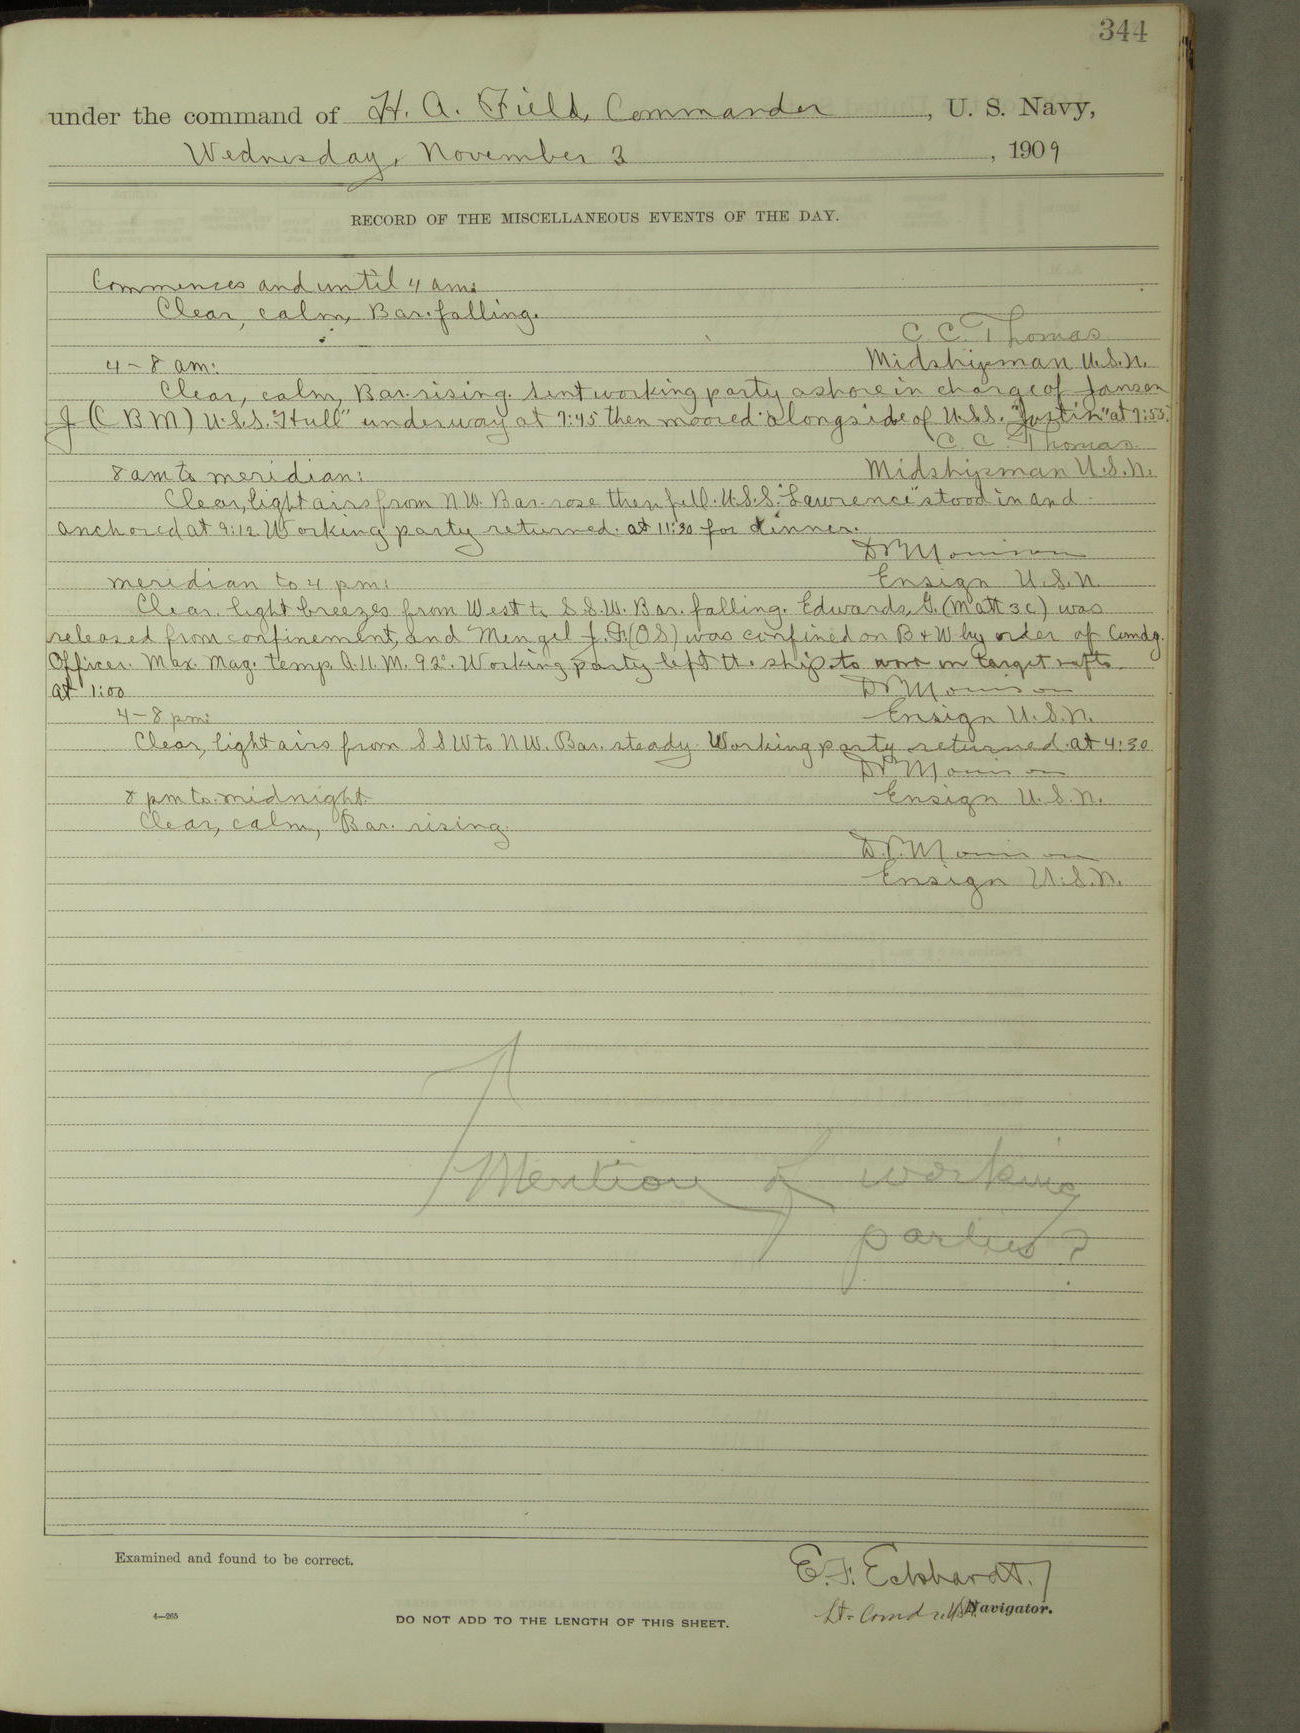 344
under the command of H. A. Field, Commander, U. S. Navy,
Wednesday, November 3, 1909
RECORD OF THE MISCELLANEOUS EVENTS OF THE DAY.
Commences and until 4 am:
Clear, calm, Bar. falling.
C. C. Thomas
4 - 8 am: Midshipman U.S.N.
Clear, calm, Bar. rising. Sent working party ashore in charge of Janson
J (C B M) U.S.S. "Hull" underway at 7:45 then moored alongside of U.S.S. "Justin" at 7:55.
C. C. Thomas
8 am to meridian: Midshipman U.S.N.
Clear, light airs from N.W. Bar. rose then fell. U.S.S. "Lawrence" stood in and
anchored at 9:12. Working party returned at 11:30 for dinner.
D. P. Morrison
meridian to 4 pm: Ensign U.S.N.
Clear. light breezes from West to S.S.W. Bar. falling. Edwards, G. (Matt 3c) was
released from confinement, and Mengel J. F. (OS) was confined on B & W by order of Comdg.
Officer. Max. Mag. temp. A.11.M. 92°. Working party left the ship to work on target rafts
at 1:00 D. P. Morrison
4 - 8 pm: Ensign U.S.N.
Clear, light airs from S S W to N W. Bar. steady. Working party returned at 4:30
D. P. Morrison
8 pm to midnight. Ensign U.S.N.
Clear, calm, Bar. rising.
D. P. Morrison
Ensign U.S.N.
Mention of working
parties?
Examined and found to be correct.
E. F. Eckhardt.
Lt-Comdr. U.S.N. Navigator.
4—265
DO NOT ADD TO THE LENGTH OF THIS SHEET.